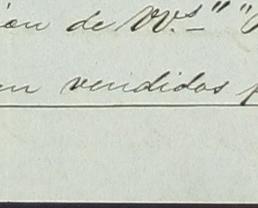 ion de VV.s " "
en vendidos p